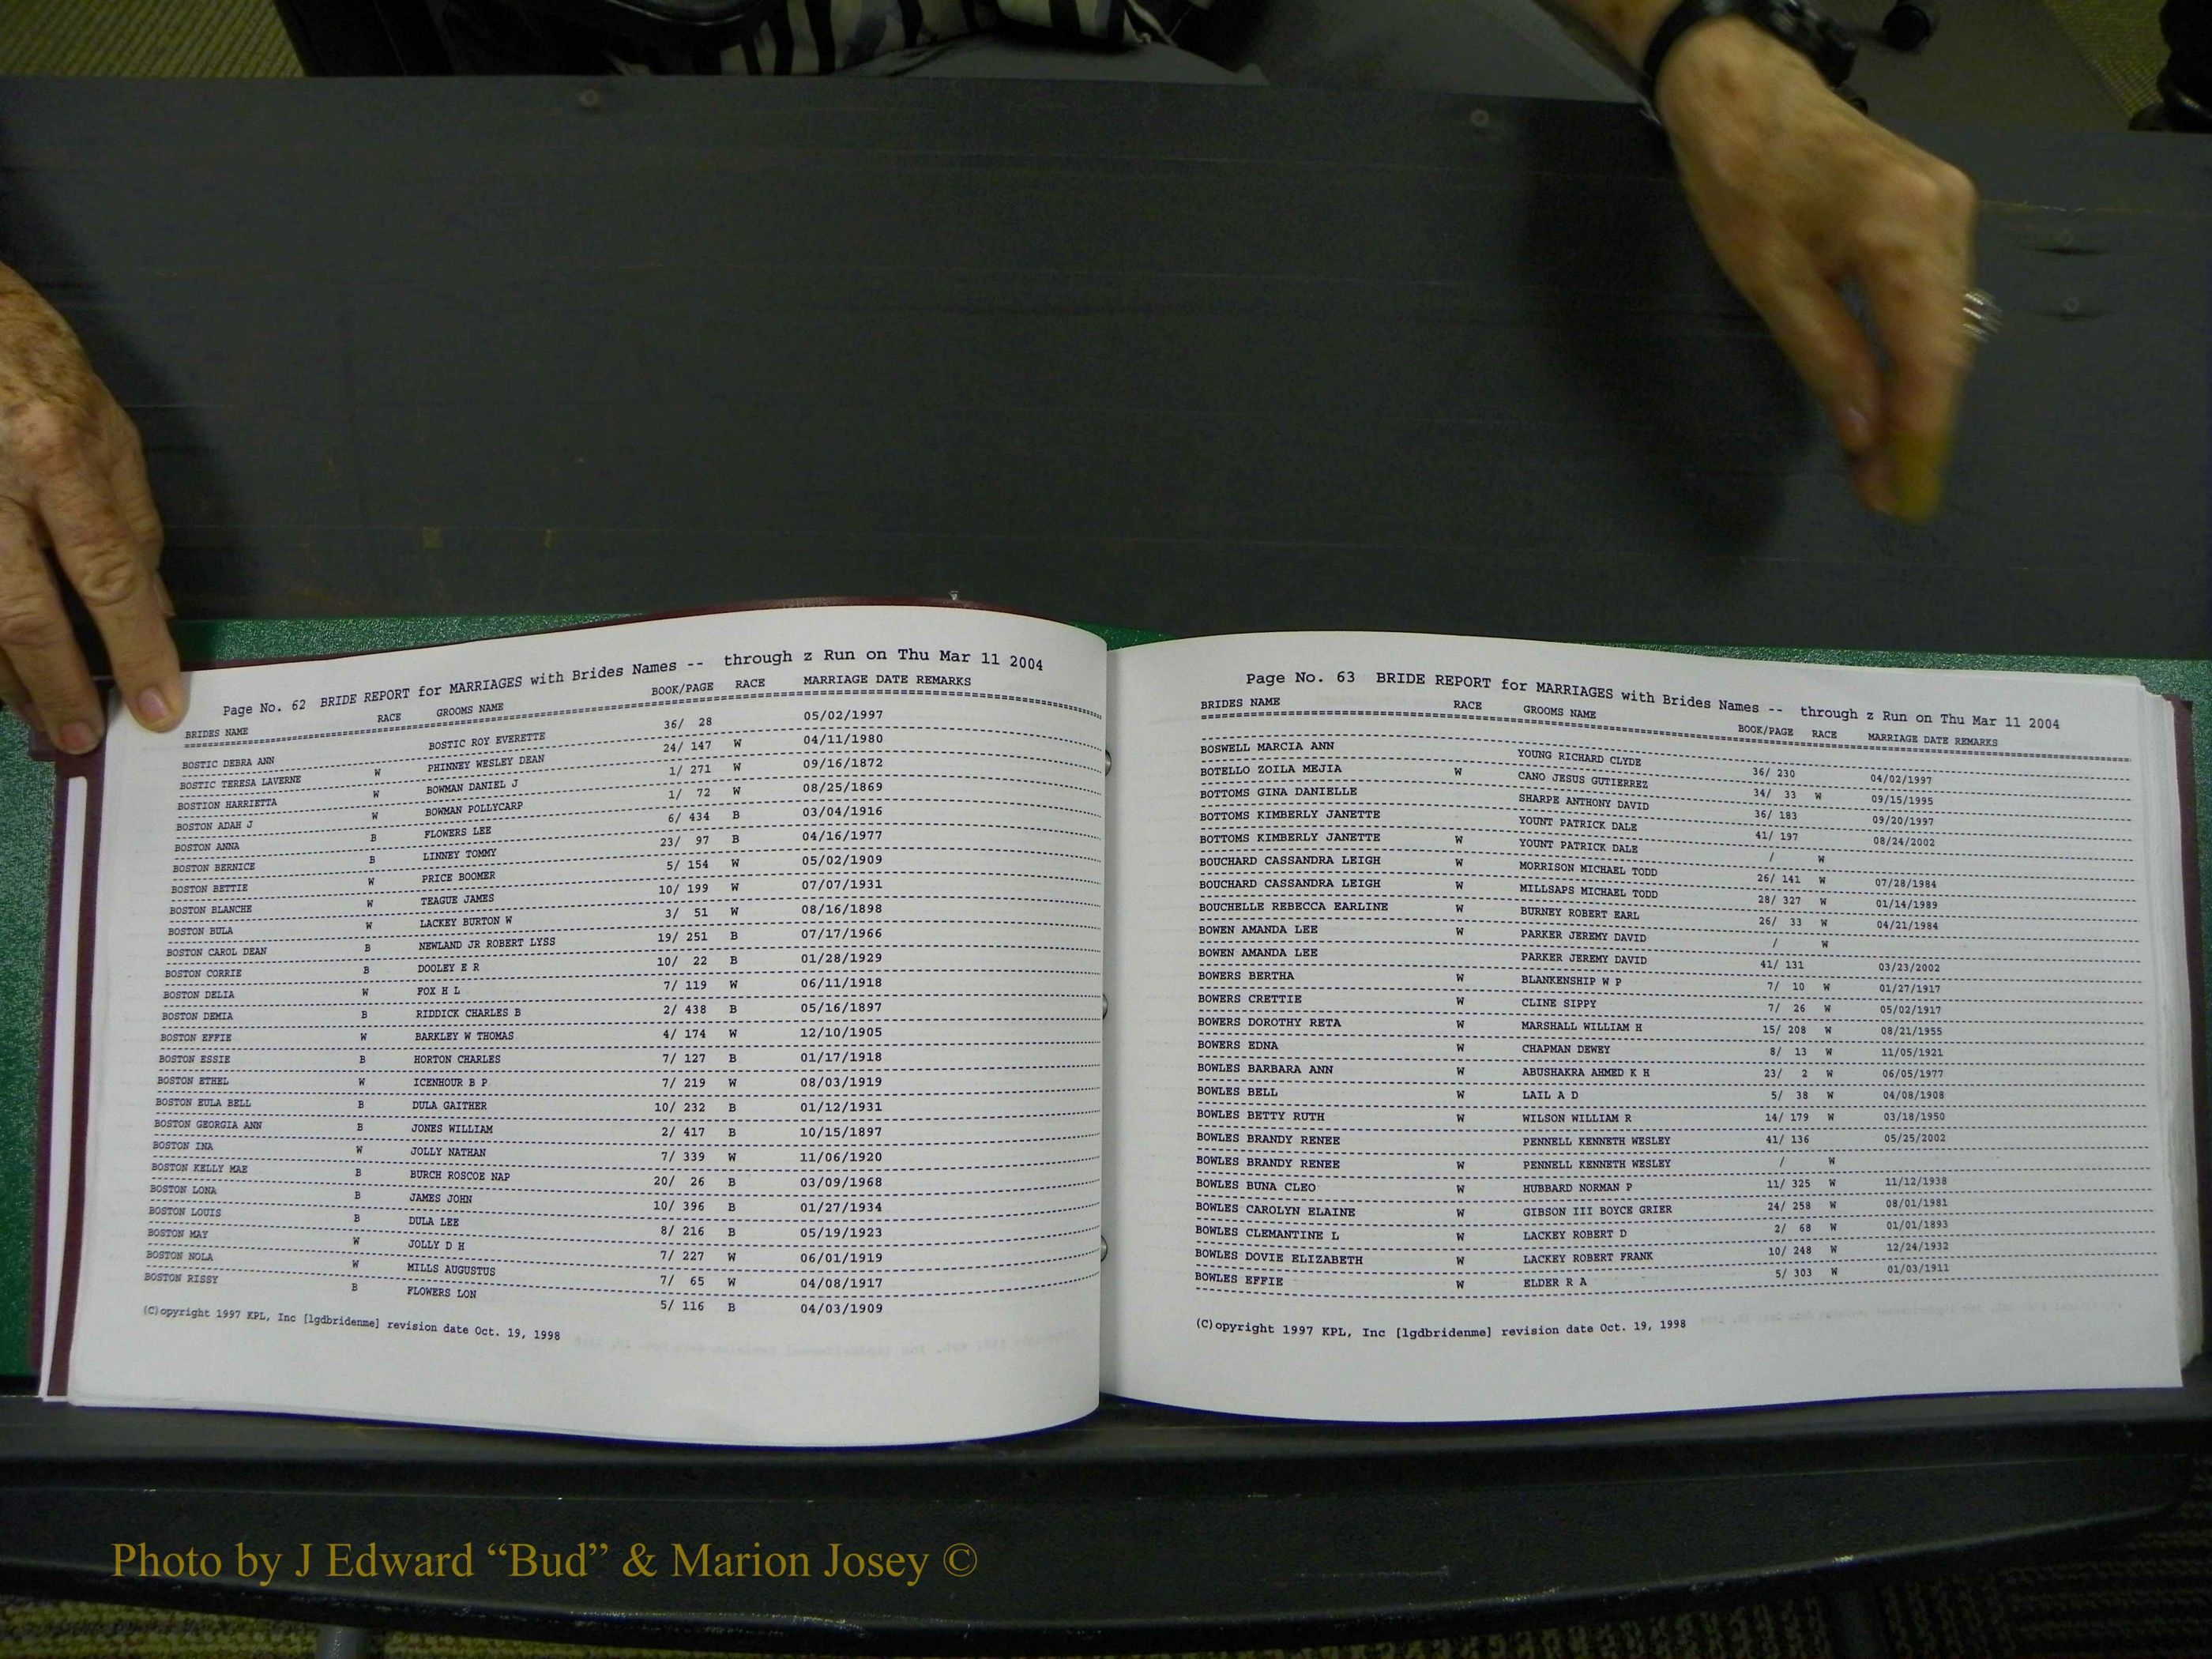 Page No. 62 BRIDE REPORT for MARRIAGES with Brides Names -- through z Run on Thu Mar 11 2004
BRIDES NAME RACE GROOMS NAME BOOK/PAGE RACE MARRIAGE DATE REMARKS
BOSTIC DEBRA ANN BOSTIC ROY EVERETTE 36/ 28 05/02/1997
BOSTIC TERESA LAVERNE W PHINNEY WESLEY DEAN 24/ 147 W 04/11/1980
BOSTION HARRIETTA W BOWMAN DANIEL J 1/ 271 W 09/16/1872
BOSTON ADAH J W BOWMAN POLLYCARP 1/ 72 W 08/25/1869
BOSTON ANNA B FLOWERS LEE 6/ 434 B 03/04/1916
BOSTON BERNICE B LINNEY TOMMY 23/ 97 B 04/16/1977
BOSTON BETTIE W PRICE BOOMER 5/ 154 W 05/02/1909
BOSTON BLANCHE W TEAGUE JAMES 10/ 199 W 07/07/1931
BOSTON BULA W LACKEY BURTON W 3/ 51 W 08/16/1898
BOSTON CAROL DEAN B NEWLAND JR ROBERT LYSS 19/ 251 B 07/17/1966
BOSTON CORRIE B DOOLEY E R 10/ 22 B 01/28/1929
BOSTON DELIA W FOX H L 7/ 119 W 06/11/1918
BOSTON DEMIA B RIDDICK CHARLES B 2/ 438 B 05/16/1897
BOSTON EFFIE W BARKLEY W THOMAS 4/ 174 W 12/10/1905
BOSTON ESSIE B HORTON CHARLES 7/ 127 B 01/17/1918
BOSTON ETHEL W ICENHOUR B P 7/ 219 W 08/03/1919
BOSTON EULA BELL B DULA GAITHER 10/ 232 B 01/12/1931
BOSTON GEORGIA ANN B JONES WILLIAM 2/ 417 B 10/15/1897
BOSTON INA W JOLLY NATHAN 7/ 339 W 11/06/1920
BOSTON KELLY MAE B BURCH ROSCOE NAP 20/ 26 B 03/09/1968
BOSTON LONA B JAMES JOHN 10/ 396 B 01/27/1934
BOSTON LOUIS B DULA LEE 8/ 216 B 05/19/1923
BOSTON MAY W JOLLY D H 7/ 227 W 06/01/1919
BOSTON NOLA W MILLS AUGUSTUS 7/ 65 W 04/08/1917
BOSTON RISSY B FLOWERS LON 5/ 116 B 04/03/1909
(C)opyright 1997 KPL, Inc [lgdbridenme] revision date Oct. 19, 1998
Page No. 63 BRIDE REPORT for MARRIAGES with Brides Names -- through z Run on Thu Mar 11 2004
BRIDES NAME RACE GROOMS NAME BOOK/PAGE RACE MARRIAGE DATE REMARKS
BOSWELL MARCIA ANN YOUNG RICHARD CLYDE 36/ 230 04/02/1997
BOTELLO ZOILA MEJIA W CANO JESUS GUTIERREZ 34/ 33 W 09/15/1995
BOTTOMS GINA DANIELLE SHARPE ANTHONY DAVID 36/ 183 09/20/1997
BOTTOMS KIMBERLY JANETTE YOUNT PATRICK DALE 41/ 197 08/24/2002
BOTTOMS KIMBERLY JANETTE W YOUNT PATRICK DALE / W
BOUCHARD CASSANDRA LEIGH W MORRISON MICHAEL TODD 26/ 141 W 07/28/1984
BOUCHARD CASSANDRA LEIGH W MILLSAPS MICHAEL TODD 28/ 327 W 01/14/1989
BOUCHELLE REBECCA EARLINE W BURNEY ROBERT EARL 26/ 33 W 04/21/1984
BOWEN AMANDA LEE W PARKER JEREMY DAVID / W
BOWEN AMANDA LEE PARKER JEREMY DAVID 41/ 131 03/23/2002
BOWERS BERTHA W BLANKENSHIP W P 7/ 10 W 01/27/1917
BOWERS CRETTIE W CLINE SIPPY 7/ 26 W 05/02/1917
BOWERS DOROTHY RETA W MARSHALL WILLIAM H 15/ 208 W 08/21/1955
BOWERS EDNA W CHAPMAN DEWEY 8/ 13 W 11/05/1921
BOWLES BARBARA ANN W ABUSHAKRA AHMED K H 23/ 2 W 06/05/1977
BOWLES BELL W LAIL A D 5/ 38 W 04/08/1908
BOWLES BETTY RUTH W WILSON WILLIAM R 14/ 179 W 03/18/1950
BOWLES BRANDY RENEE PENNELL KENNETH WESLEY 41/ 136 05/25/2002
BOWLES BRANDY RENEE W PENNELL KENNETH WESLEY / W
BOWLES BUNA CLEO W HUBBARD NORMAN P 11/ 325 W 11/12/1938
BOWLES CAROLYN ELAINE W GIBSON III BOYCE GRIER 24/ 258 W 08/01/1981
BOWLES CLEMANTINE L W LACKEY ROBERT D 2/ 68 W 01/01/1893
BOWLES DOVIE ELIZABETH W LACKEY ROBERT FRANK 10/ 248 W 12/24/1932
BOWLES EFFIE W ELDER R A 5/ 303 W 01/03/1911
(C)opyright 1997 KPL, Inc [lgdbridenme] revision date Oct. 19, 1998
Photo by J Edward “Bud” & Marion Josey ©